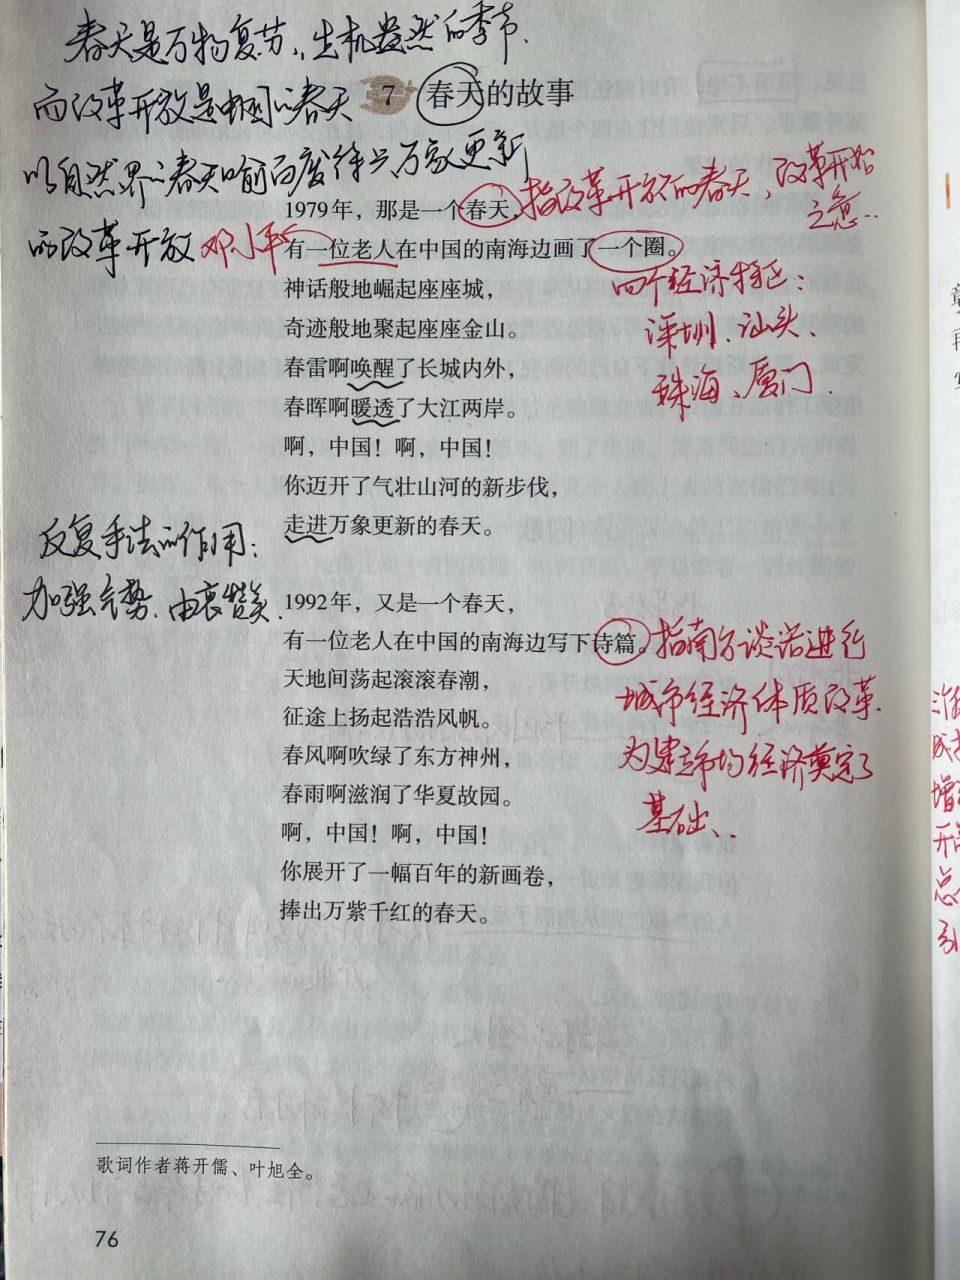 春天是万物复苏、生机盎然的季节.
而改革开放是中国的春天
7 春天的故事
以自然界的春天喻百废待兴万象更新
的改革开放
1979年，那是一个春天，
指改革开放的春天、改革开始
之意..
邓小平
有一位老人在中国的南海边画了一个圈。
四个经济特区：
深圳、汕头、
珠海、厦门.
神话般地崛起座座城，
奇迹般地聚起座座金山。
春雷啊唤醒了长城内外，
春晖啊暖透了大江两岸。
啊，中国！啊，中国！
你迈开了气壮山河的新步伐，
走进万象更新的春天。
反复手法的作用：
加强气势.由衷赞美.
1992年，又是一个春天，
有一位老人在中国的南海边写下诗篇。
指南方谈话进行
城市经济体质改革.
为建市场经济奠定了
基础、、
天地间荡起滚滚春潮，
征途上扬起浩浩风帆。
春风啊吹绿了东方神州，
春雨啊滋润了华夏故园。
啊，中国！啊，中国！
你展开了一幅百年的新画卷，
捧出万紫千红的春天。
歌词作者蒋开儒、叶旭全。
76